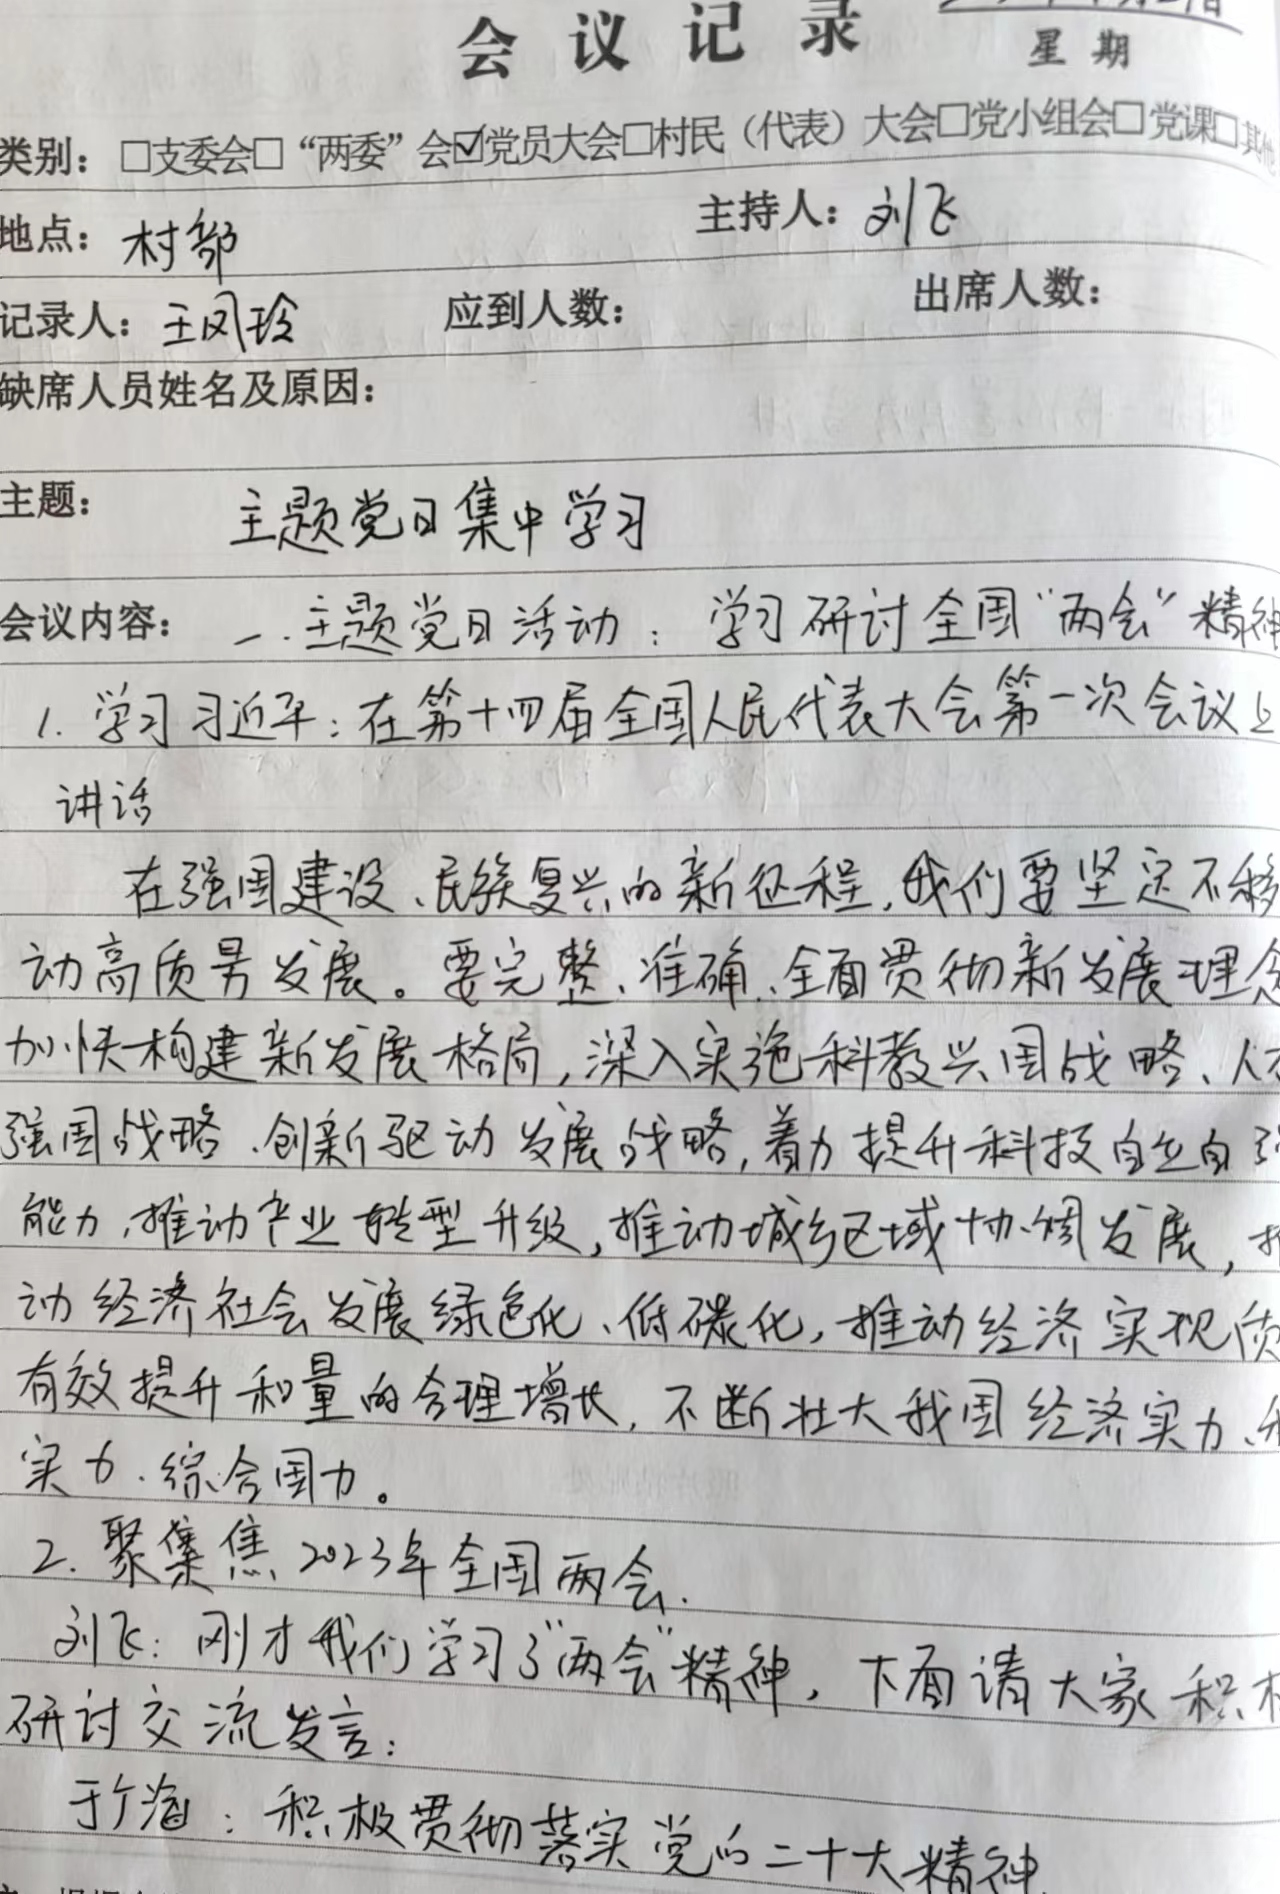 会议记录
星期
类别：□支委会□“两委”会☑党员大会□村民（代表）大会□党小组会□党课□其他
地点：村部 主持人：刘飞
记录人：王凤玲 应到人数： 出席人数：
缺席人员姓名及原因：
主题： 主题党日集中学习
会议内容： 一.主题党日活动：学习研讨全国“两会”精神
1. 学习习近平：在第十四届全国人民代表大会第一次会议上
讲话
在强国建设、民族复兴的新征程，我们要坚定不移
动高质量发展。要完整、准确、全面贯彻新发展理念
加快构建新发展格局，深入实施科教兴国战略、人才
强国战略、创新驱动发展战略，着力提升科技自立自强
能力，推动产业转型升级，推动城乡区域协调发展，推
动经济社会发展绿色化、低碳化，推动经济实现质
有效提升和量的合理增长，不断壮大我国经济实力、科
实力、综合国力。
2. 聚集焦2023年全国两会.
刘飞：刚才我们学习了“两会”精神，下面请大家积极
研讨交流发言：
于广海：积极贯彻落实党的二十大精神